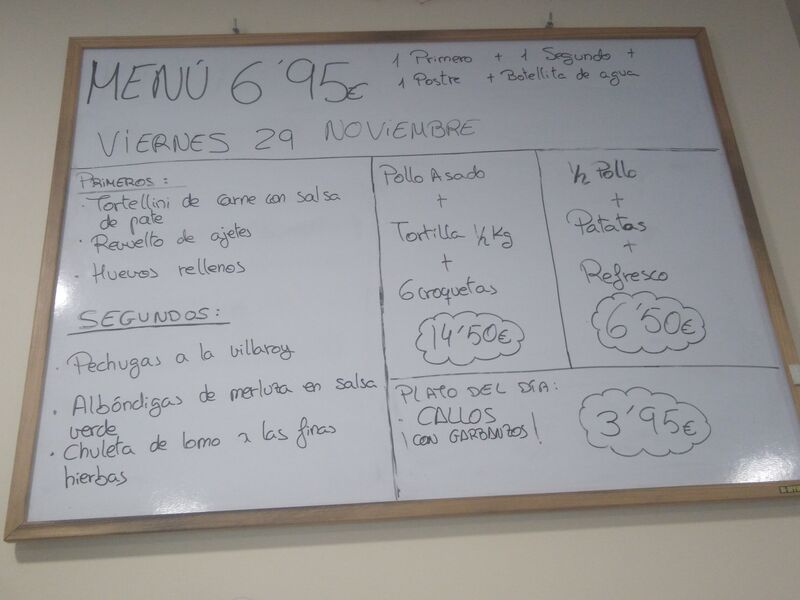 MENÚ 6'95€
1 Primero + 1 Segundo +
1 Postre + Botellita de agua
VIERNES 29 NOVIEMBRE
PRIMEROS:
· Tortellini de carne con salsa
de pate
· Revuelto de ajetes
· Huevos rellenos
SEGUNDOS:
· Pechugas a la villaroy
· Albóndigas de merluza en salsa
verde
· Chuleta de lomo a las finas
hierbas
Pollo Asado
+
Tortilla ½ Kg
+
6 croquetas
14'50€
½ Pollo
+
Patatas
+
Refresco
6'50€
PLATO DEL DÍA:
· CALLOS
¡CON GARBANZOS!
3'95€